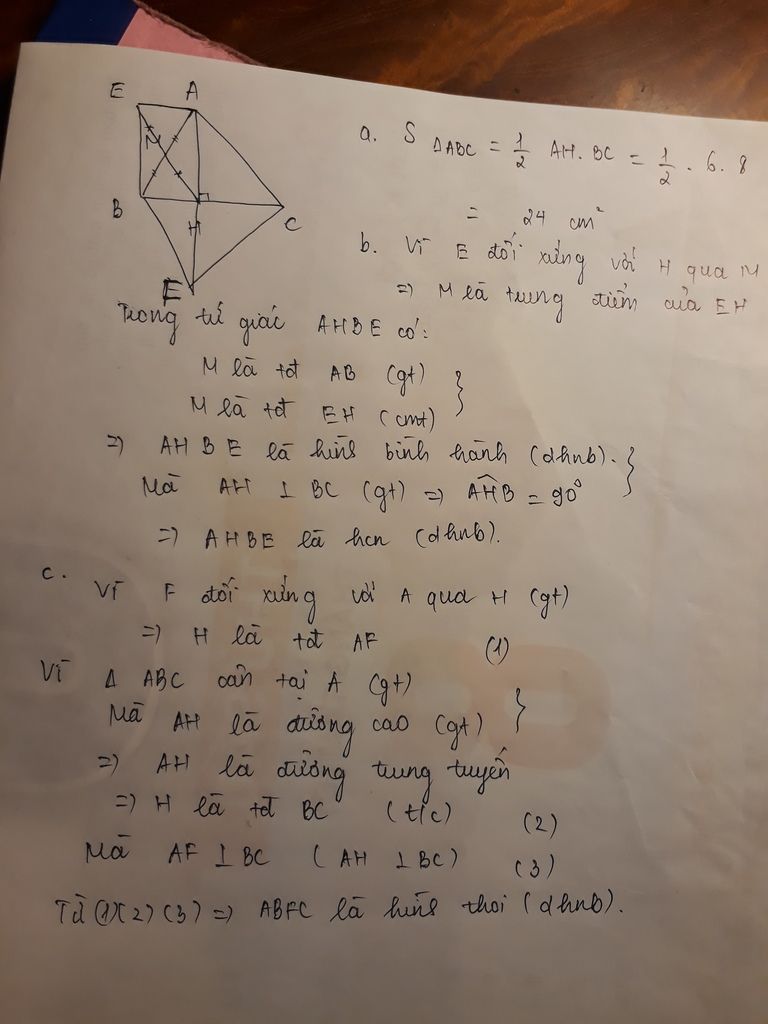 E A
M
B
H
C
E
a. S ΔABC = 1/2 AH. BC = 1/2 . 6. 8
= 24 cm²
b. Vì E đối xứng với H qua M
=> M là trung điểm của EH
Trong tứ giác AHBE có:
M là tđ AB (gt) }
M là tđ EH (cmt)
=> AHBE là hình bình hành (dhnb). }
Mà AH ⊥ BC (gt) => AHB = 90°
=> AHBE là hcn (dhnb).
c. Vì F đối xứng với A qua H (gt)
=> H là tđ AF (1)
Vì Δ ABC cân tại A (gt) }
Mà AH là đường cao (gt)
=> AH là đường trung tuyến
=> H là tđ BC (t/c) (2)
Mà AF ⊥ BC ( AH ⊥ BC) (3)
Từ (1)(2) (3) => ABFC là hình thoi (dhnb).